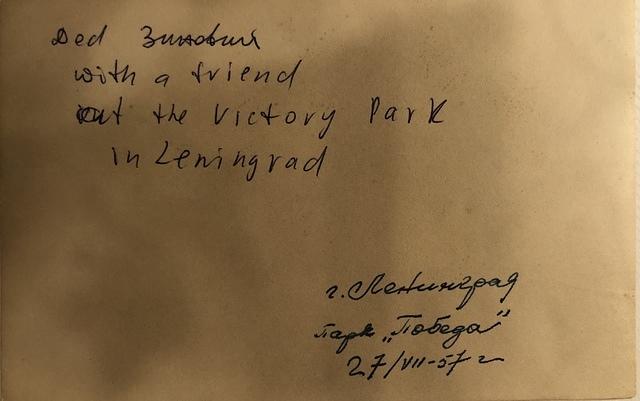 Дед Зиновий
with a friend
at the Victory Park
in Leningrad
г. Ленинград
парк „Победа"
27/VII-57 г